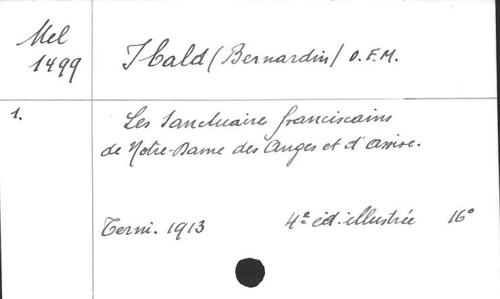 Mel
1499
Ibald (Bernardin) O.F.M.
1.
Les Sanctuaire franciscains
de Notre-Dame des Anges et d'Assise.
Terni. 1913 4e éd. illustrée 16°